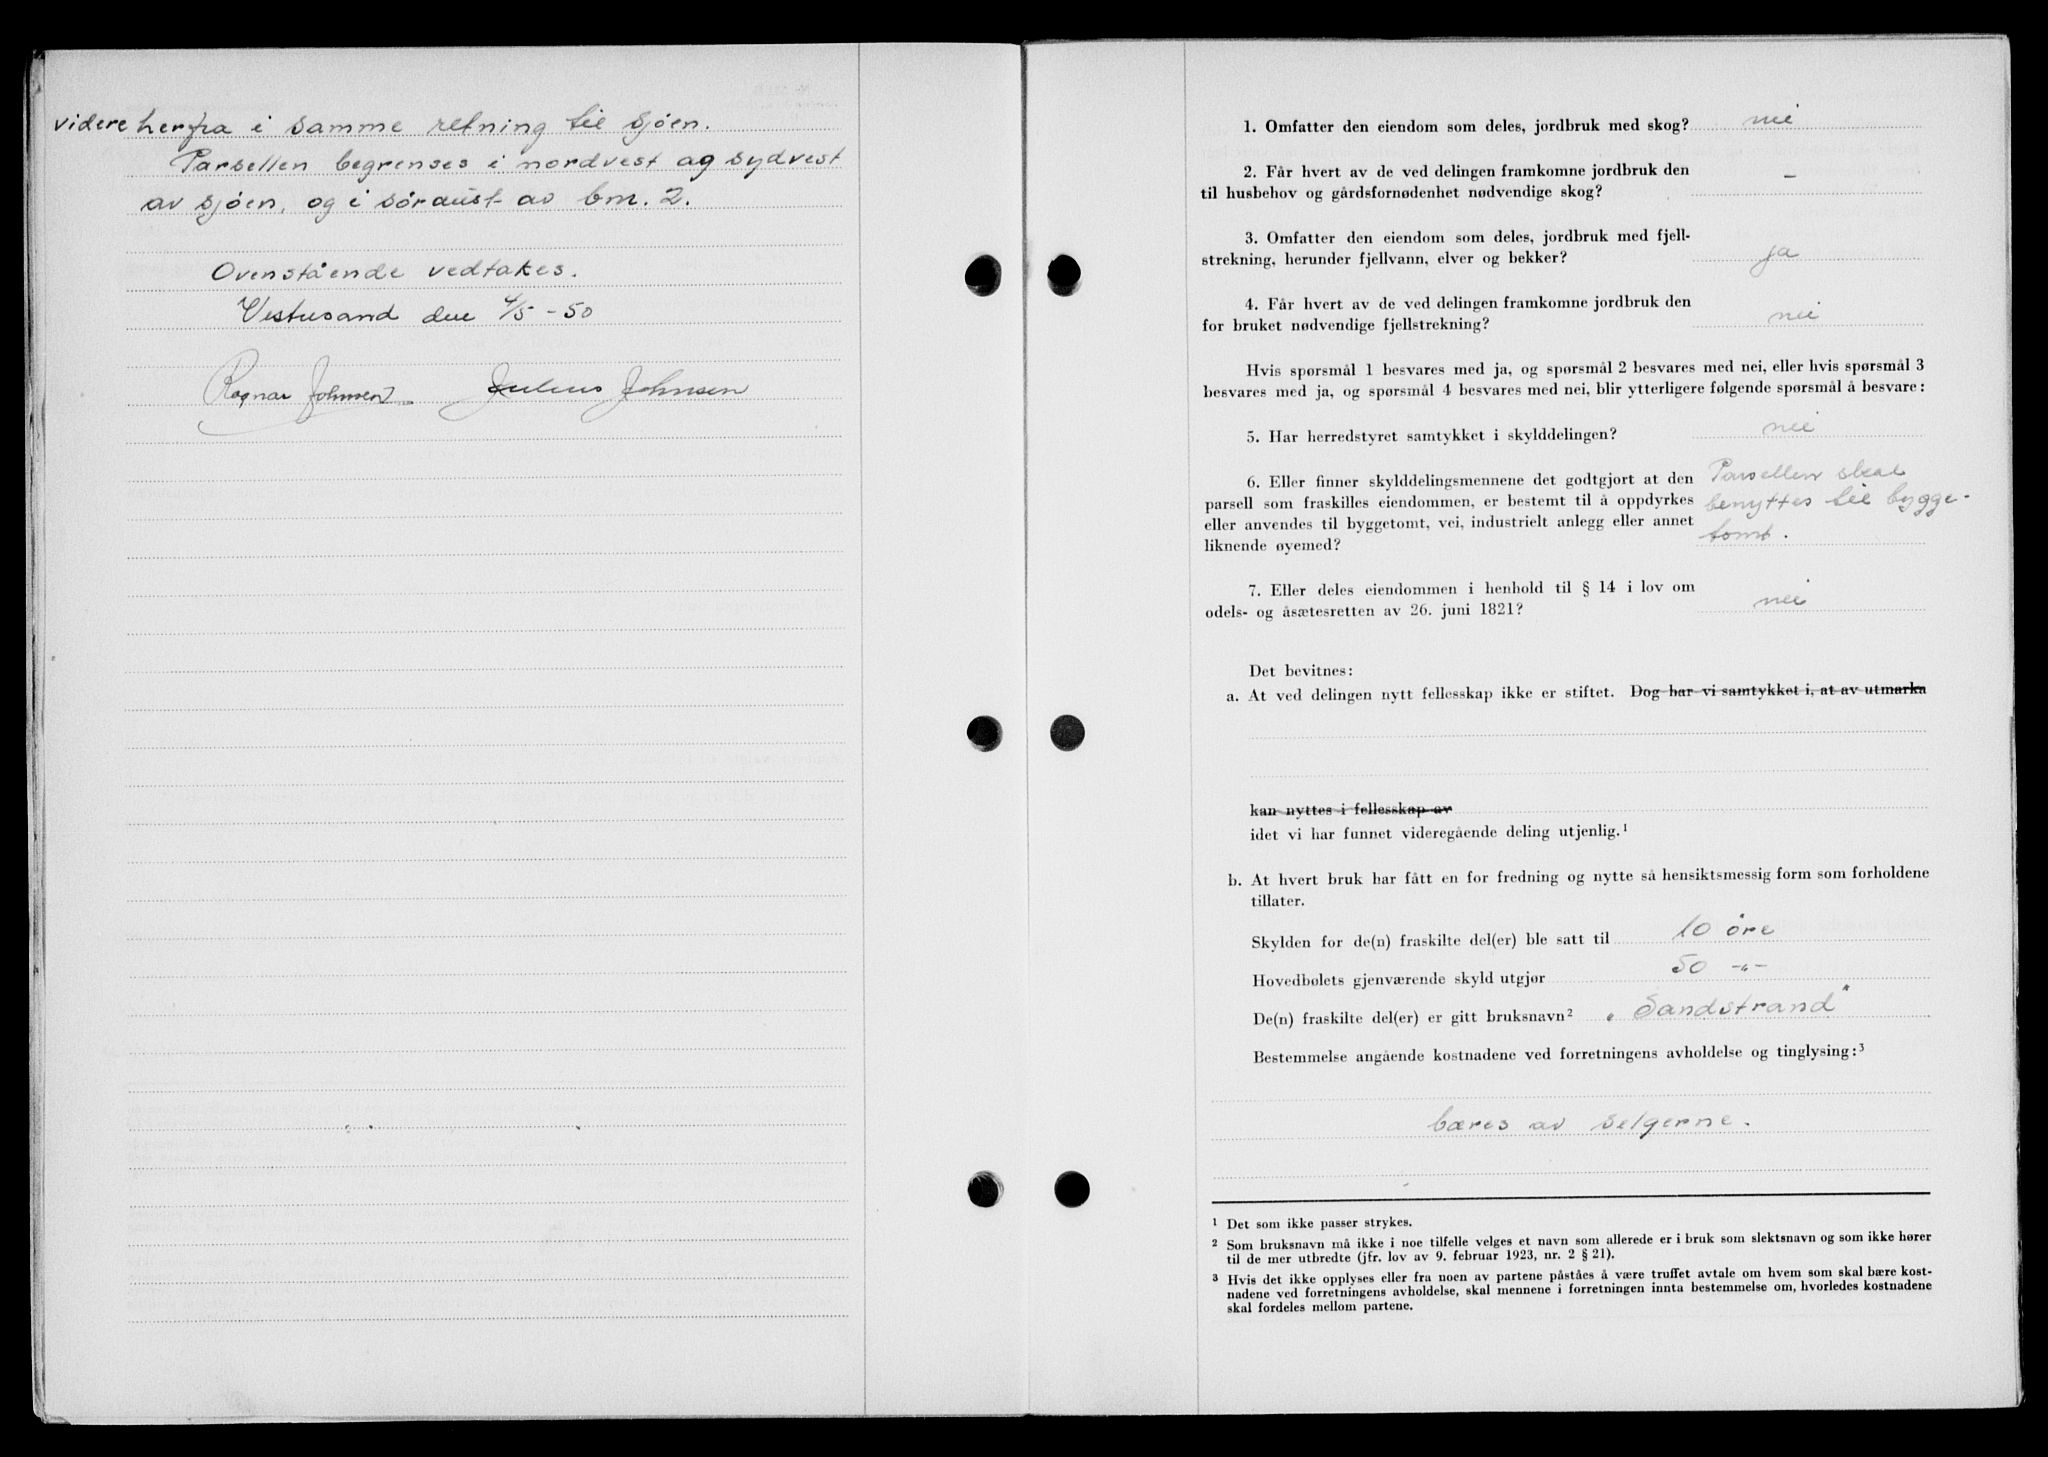 videre herfra i samme retning til sjøen.
Parsellen begrenses i nordvest og sydvest
av sjøen, og i søraust av bm. 2.
Ovenstående vedtakes.
Vestresand den 4/5 - 50
Ragnar Johnsen. Julius Johnsen
1. Omfatter den eiendom som deles, jordbruk med skog? nei
2. Får hvert av de ved delingen framkomne jordbruk den
til husbehov og gårdsfornødenhet nødvendige skog? –
3. Omfatter den eiendom som deles, jordbruk med fjell-
strekning, herunder fjellvann, elver og bekker? ja
4. Får hvert av de ved delingen framkomne jordbruk den
for bruket nødvendige fjellstrekning? nei
Hvis spørsmål 1 besvares med ja, og spørsmål 2 besvares med nei, eller hvis spørsmål 3
besvares med ja, og spørsmål 4 besvares med nei, blir ytterligere følgende spørsmål å besvare:
5. Har herredstyret samtykket i skylddelingen? nei
6. Eller finner skylddelingsmennene det godtgjort at den Parsellen skal
parsell som fraskilles eiendommen, er bestemt til å oppdyrkes benyttes til bygge-
eller anvendes til byggetomt, vei, industrielt anlegg eller annet tomt.
liknende øyemed?
7. Eller deles eiendommen i henhold til § 14 i lov om
odels- og åsætesretten av 26. juni 1821? nei
Det bevitnes:
a. At ved delingen nytt fellesskap ikke er stiftet. Dog har vi samtykket i, at av utmarka
kan nyttes i fellesskap av
idet vi har funnet videregående deling utjenlig.¹
b. At hvert bruk har fått en for fredning og nytte så hensiktsmessig form som forholdene
tillater.
Skylden for de(n) fraskilte del(er) ble satt til 10 øre
Hovedbølets gjenværende skyld utgjør 50 -"-
De(n) fraskilte del(er) er gitt bruksnavn² "Sandstrand"
Bestemmelse angående kostnadene ved forretningens avholdelse og tinglysing:³
bæres av selgerne.
¹ Det som ikke passer strykes.
² Som bruksnavn må ikke i noe tilfelle velges et navn som allerede er i bruk som slektsnavn og som ikke hører
til de mer utbredte (jfr. lov av 9. februar 1923, nr. 2 § 21).
³ Hvis det ikke opplyses eller fra noen av partene påståes å være truffet avtale om hvem som skal bære kost-
nadene ved forretningens avholdelse, skal mennene i forretningen innta bestemmelse om, hvorledes kostnadene
skal fordeles mellom partene.